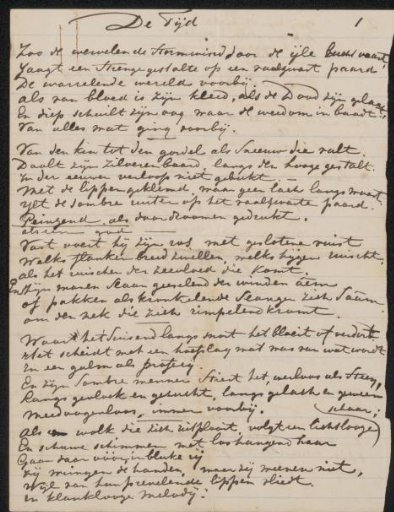 De Tijd
1
Zoo de wervelende Stormwind door de ijle lucht vaart,
Jaagt een Strenge gestalte op een vaalzwart paard
De warrelende wereld voorbij.
als van bloed is zijn kleed, als de Dood zijn gelaat
En diep schuilt zijn oog waar de weedom in baadt
Van alles wat ging voorbij.
Van den kin tot den gordel als Sneeuw die valt
Daalt zijn zilveren baard, langs den hooge gestalt
In der eeuwen verloop niet gebukt.
Met de lippen geklemd, waar geen lach langs waart
Ijlt de sombre ruiter op het vaalzwarte paard.
Peinzend, als door droomen gedrukt.
als een god
Vast voert hij zijn ros met geslotene vuist
Welks flanken breed zwellen, welks hijgen ruischt
als het ruischen der zeevloed die komt.
Zijn manen Staan geeselend der winden äem
of pakken als kronkelende Slangen zich Saam
om den nek die zich rimpelend kromt.
Waar het Suisend langs snort het bloeit of verdort
Het scheidt met een hoefslag wat was van wat wordt
In een galm als profetij
En zijn Sombre menner Stiert het, werkloos als Steen,
Langs gevloek en gezucht, langs gelach en geween
Meedoogenloos, immer voorbij.
als een wolk die zich uitplooit, volgt een lichtlooze
schaar,
En schuwe schimmen met loshangend haar
Gaan daar
Zij wringen de handen, maar zij weenen niet,
Wijl van hun prevelende lippen vliedt
een klanklooze melodij.